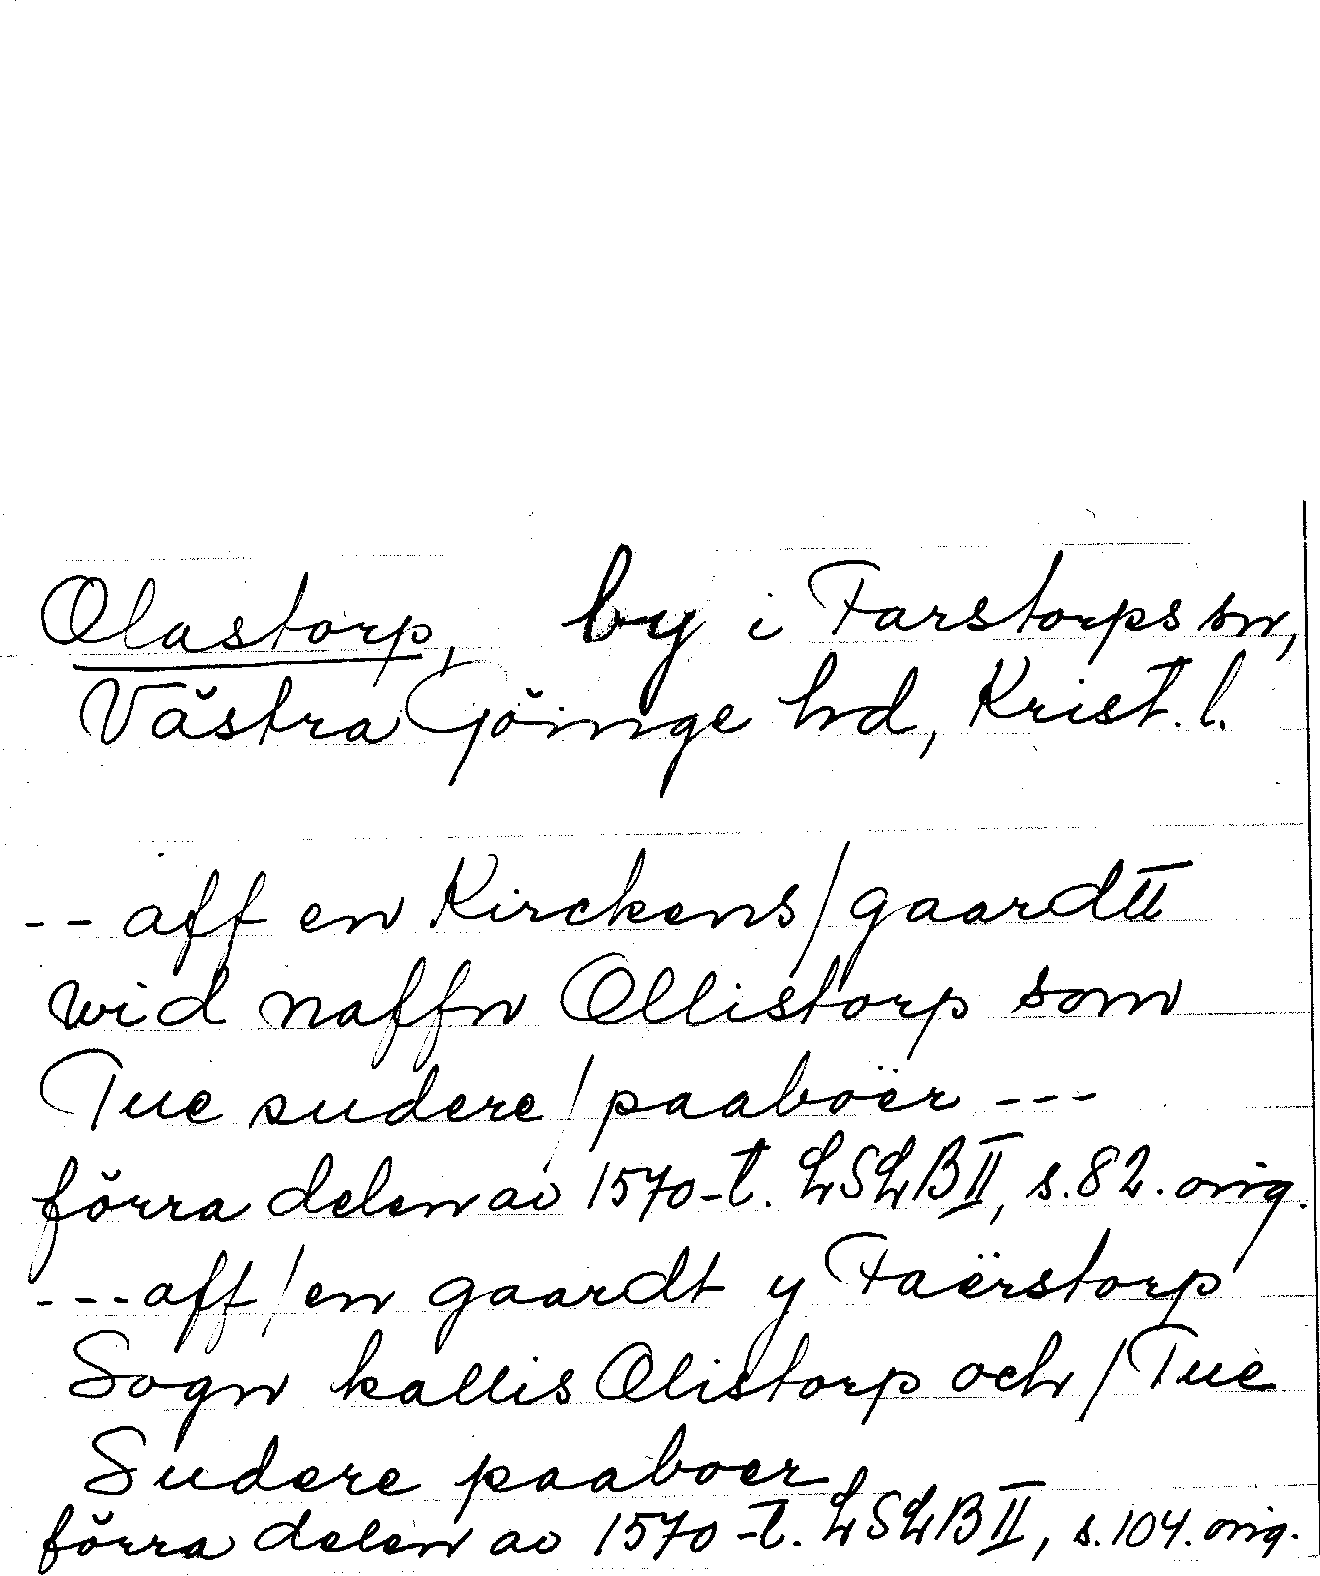 Olastorp, by i Farstorps sn,
Västra Göinge hd, Krist. l.
-- aff en Kirckens/gaardtt
wid naffn Ollistorp som
Tue sudere/paaboër ---
förra delen av 1570-t. LSLB II, s. 82. orig.
---aff/en gaardt y Faërstorp
Sogn kallis Olistorp och/Tue
Sudere paaboer
förra delen av 1570-t. LSLB II, s. 104. orig.